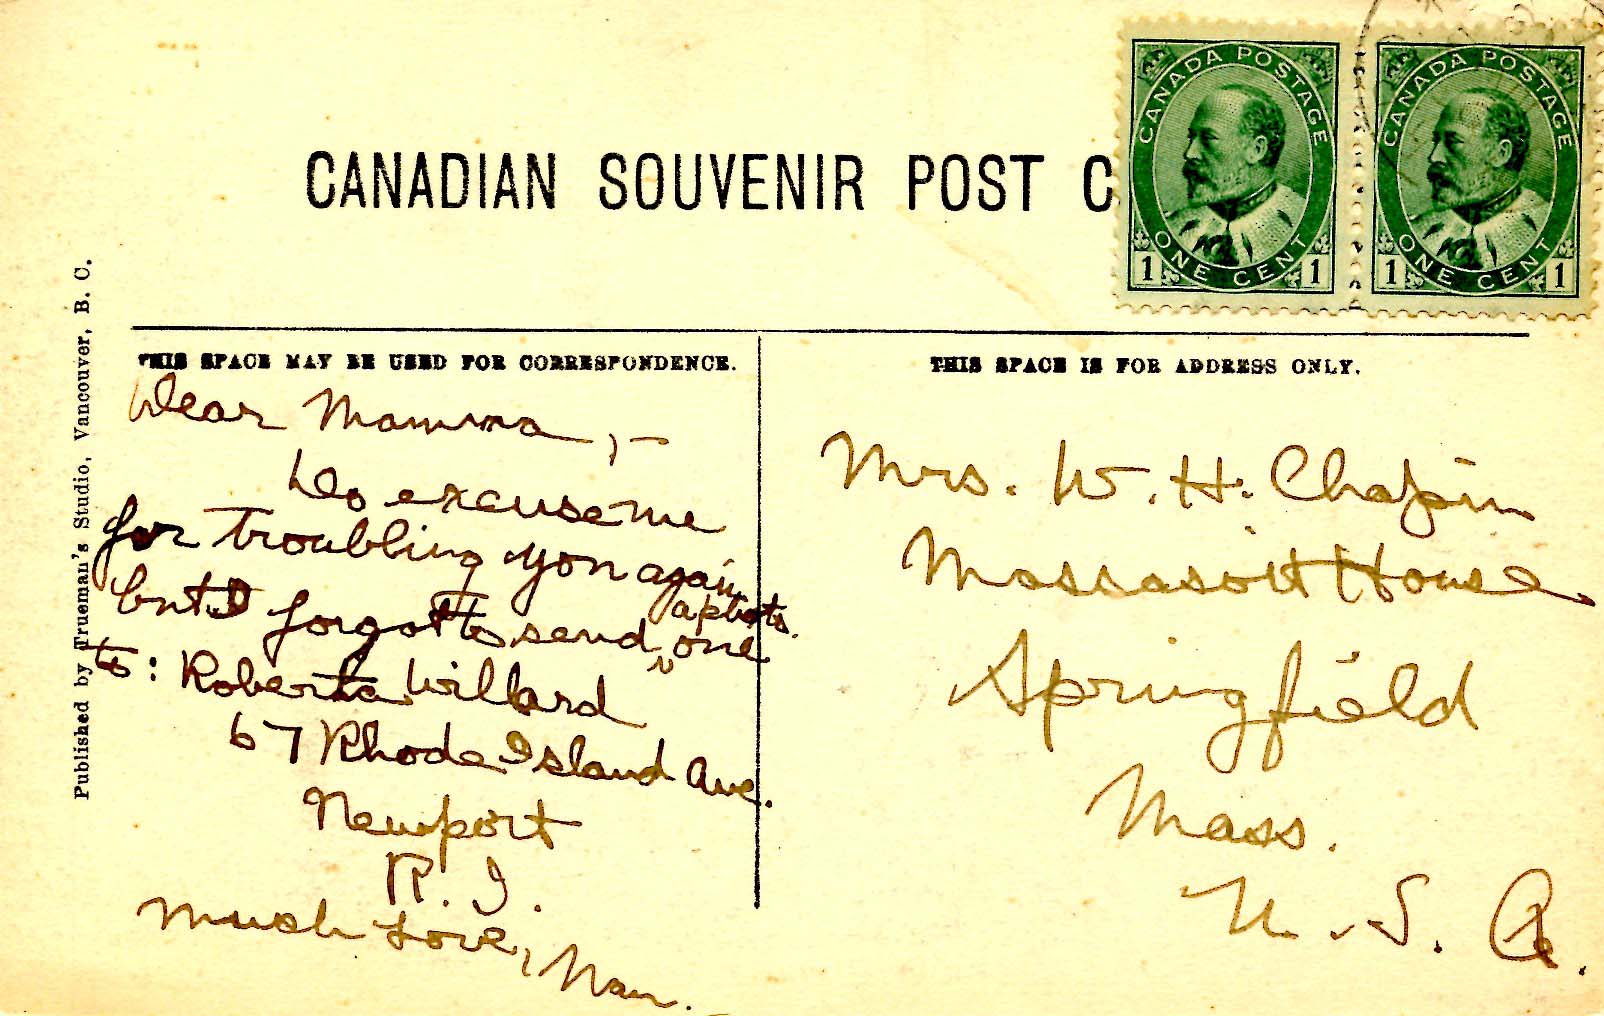 CANADIAN SOUVENIR POST C
CANADA POSTAGE
ONE CENT
1 1
CANADA POSTAGE
ONE CENT
1 1
Published by Trueman's Studio, Vancouver, B. C.
THIS SPACE MAY BE USED FOR CORRESPONDENCE.
Dear Mamma,-
Do excuse me
for troubling you again
but I forgot to send one
to: Roberta Willard
67 Rhode Island Ave.
Newport
R. I.
Much Love,
Nan.
THIS SPACE IS FOR ADDRESS ONLY.
Mrs. W. H. Chapin
Massasoit House
Springfield
Mass.
U. S. A.